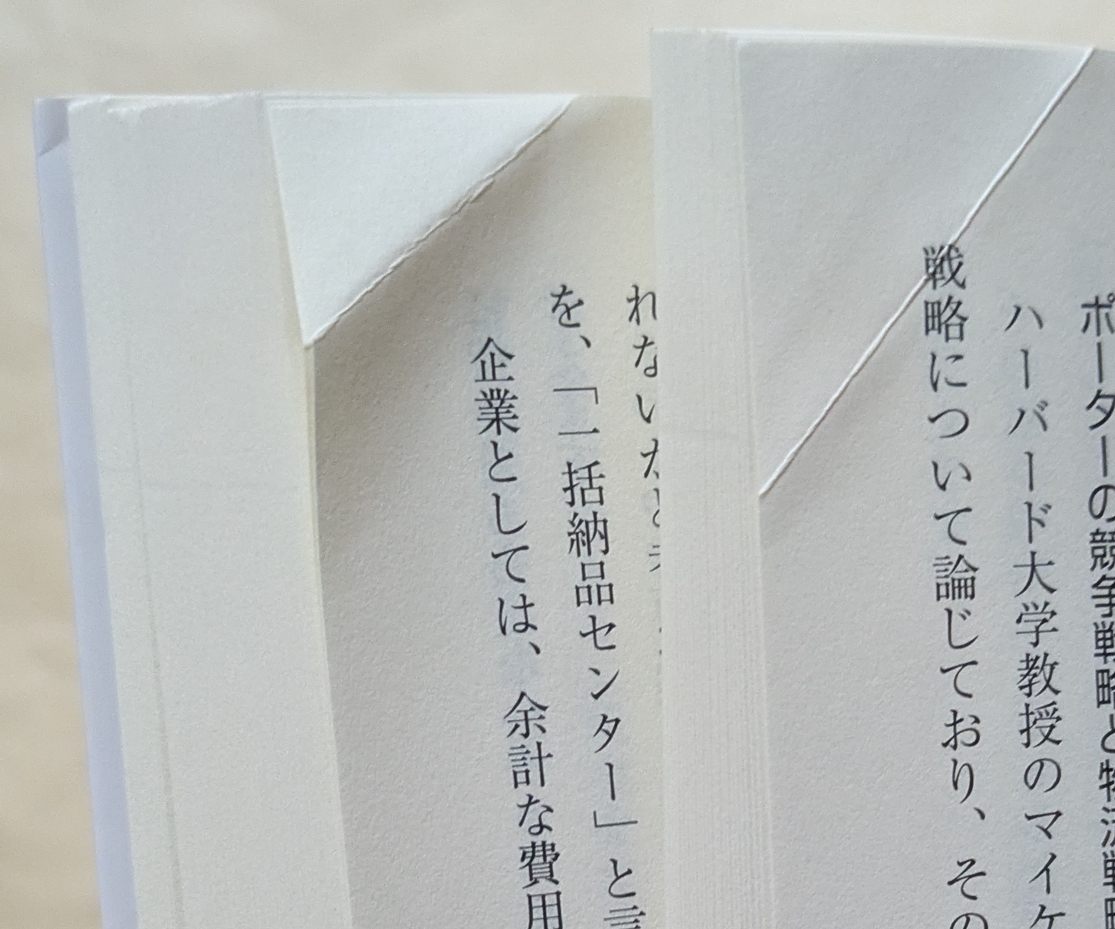 ポーターの競争戦略と物流戦略
ハーバード大学教授のマイケ
戦略について論じており、その
れない
を、「一括納品センター」と言
企業としては、余計な費用